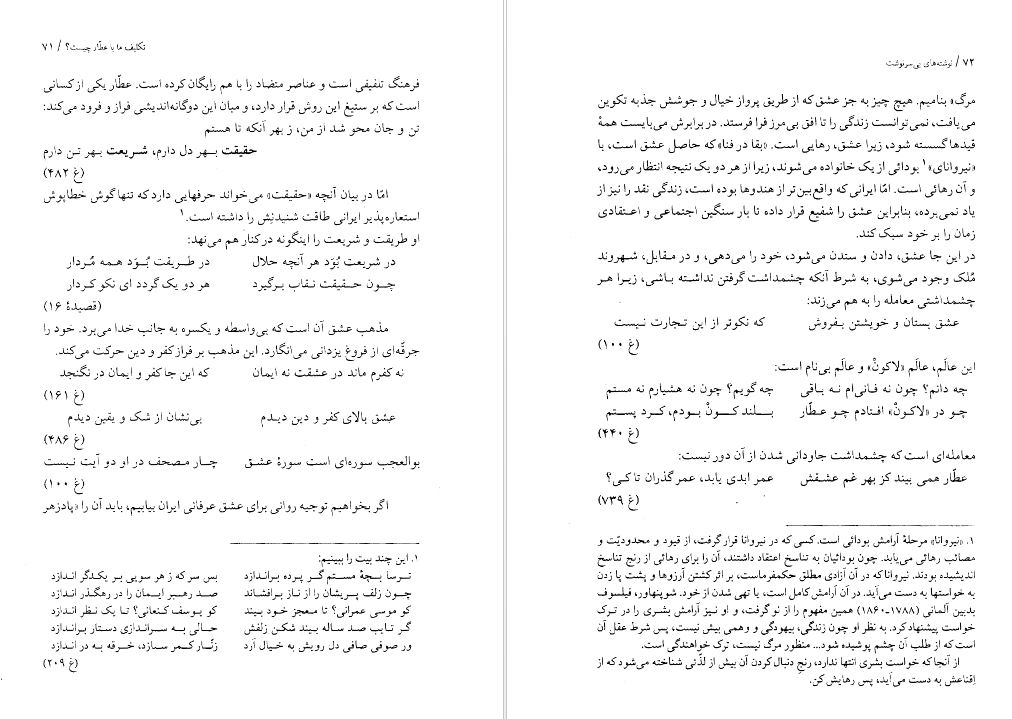 تکلیف ما با عطّار چیست؟ / ۷۱
فرهنگ تلفیقی است و عناصر متضاد را با هم رایگان کرده است. عطّار یکی از کسانی
است که بر ستیغ این روش قرار دارد، و میان این دوگانه‌اندیشی فراز و فرود می‌کند:
تن و جان محو شد از من، ز بهر آنکه تا هستم
حقیقت بهر دل دارم، شریعت بهر تن دارم
(غ ۴۸۲)
امّا در بیان آنچه «حقیقت» می‌خواند حرفهایی دارد که تنها گوش خطاپوش
استعاره‌پذیر ایرانی طاقت شنیدنِش را داشته است.۱
او طریقت و شریعت را اینگونه در کنار هم می‌نهد:
در شریعت بُوَد هر آنچه حلال در طریقت بُوَد همه مُردار
چون حقیقت نقاب برگیرد هر دو یک گردد ای نکو کردار
(قصیدهٔ ۱۶)
مذهب عشق آن است که بی‌واسطه و یکسره به جانب خدا می‌برد. خود را
جرقّه‌ای از فروغ یزدانی می‌انگارد. این مذهب بر فراز کفر و دین حرکت می‌کند.
نه کفرم ماند در عشقت نه ایمان که این جا کفر و ایمان در نگنجد
(غ ۱۶۱)
عشق بالای کفر و دین دیدم بی‌نشان از شک و یقین دیدم
(غ ۴۸۶)
بوالعجب سوره‌ای است سورهٔ عشق چار مصحف در او دو آیت نیست
(غ ۱۰۰)
اگر بخواهیم توجیه روانی برای عشق عرفانی ایران بیابیم، باید آن را «پادزهر
۱. این چند بیت را ببینیم:
ترسا بچهٔ مستم گر پرده براندازد بس سر که ز هر سویی بر یکدگر اندازد
چون زلف پریشان را از ناز برافشاند صد رهبر ایمان را در رهگذر اندازد
کو موسی عمرانی؟ تا معجز خود بیند کو یوسف کنعانی؟ تا یک نظر اندازد
گر تایب صد ساله بیند شکن زلفش حالی به سراندازی دستار براندازد
ور صوفی صافی دل رویش به خیال آرد زنّار کمر سازد، خرقه به در اندازد
(غ ۲۰۹)
۷۲ / نوشته‌های بی‌سرنوشت
مرگ» بنامیم. هیچ چیز به جز عشق که از طریق پرواز خیال و جوشش جذبه تکوین
می‌یافت، نمی‌توانست زندگی را تا افق بی‌مرز فرا فرستد. در برابرش می‌بایست همهٔ
قیدها گسسته شود، زیرا عشق، رهایی است. «بقا در فنا» که حاصل عشق است، با
«نیروانای»۱ بودائی از یک خانواده می‌شوند، زیرا از هر دو یک نتیجه انتظار می‌رود،
و آن رهائی است. امّا ایرانی که واقع‌بین‌تر از هندوها بوده است، زندگی نقد را نیز از
یاد نمی‌برده، بنابراین عشق را شفیع قرار داده تا بار سنگین اجتماعی و اعتقادی
زمان را بر خود سبک کند.
در این جا عشق، دادن و ستدن می‌شود، خود را می‌دهی، و در مقابل، شهروند
مُلک وجود می‌شوی، به شرط آنکه چشمداشت گرفتن نداشته باشی، زیرا هر
چشمداشتی معامله را به هم می‌زند:
عشق بستان و خویشتن بفروش که نکوتر از این تجارت نیست
(غ ۱۰۰)
این عالَم، عالَم «لاکونْ» و عالَم بی‌نام است:
چه دانم؟ چون نه فانی‌ام نه باقی چه گویم؟ چون نه هشیارم نه مستم
چو در «لاکونْ» افتادم چو عطّار بلند کونْ بودم، کرد پستم
(غ ۴۴۰)
معامله‌ای است که چشمداشت جاودانی شدن از آن دور نیست:
عطّار همی بیند کز بهر غم عشقش عمر ابدی یابد، عمر گذران تا کی؟
(غ ۷۳۹)
۱. «نیروانا» مرحلهٔ آرامش بودائی است. کسی که در نیروانا قرار گرفت، از قیود و محدودیّت و
مصائب رهائی می‌یابد. چون بودائیان به تناسخ اعتقاد داشتند، آن را برای رهائی از رنج تناسخ
اندیشیده بودند. نیروانا که در آن آزادی مطلق حکمفرماست، بر اثر کشتن آرزوها و پشت پا زدن
به خواستها به دست می‌آید. در آن آرامش کامل است، یا تهی شدن از خود. شوپنهاور، فیلسوف
بدبین آلمانی (۱۷۸۸-۱۸۶۰) همین مفهوم را از نو گرفت، و او نیز آرامش بشری را در ترک
خواست پیشنهاد کرد. به نظر او چون زندگی، بیهودگی و وهمی بیش نیست، پس شرط عقل آن
است که از طلب آن چشم پوشیده شود... منظور مرگ نیست، ترک خواهندگی است.
از آنجا که خواست بشری انتها ندارد، رنجِ دنبال کردن آن بیش از لذّتی شناخته می‌شود که از
اِقناعش به دست می‌آید، پس رهایش کن.